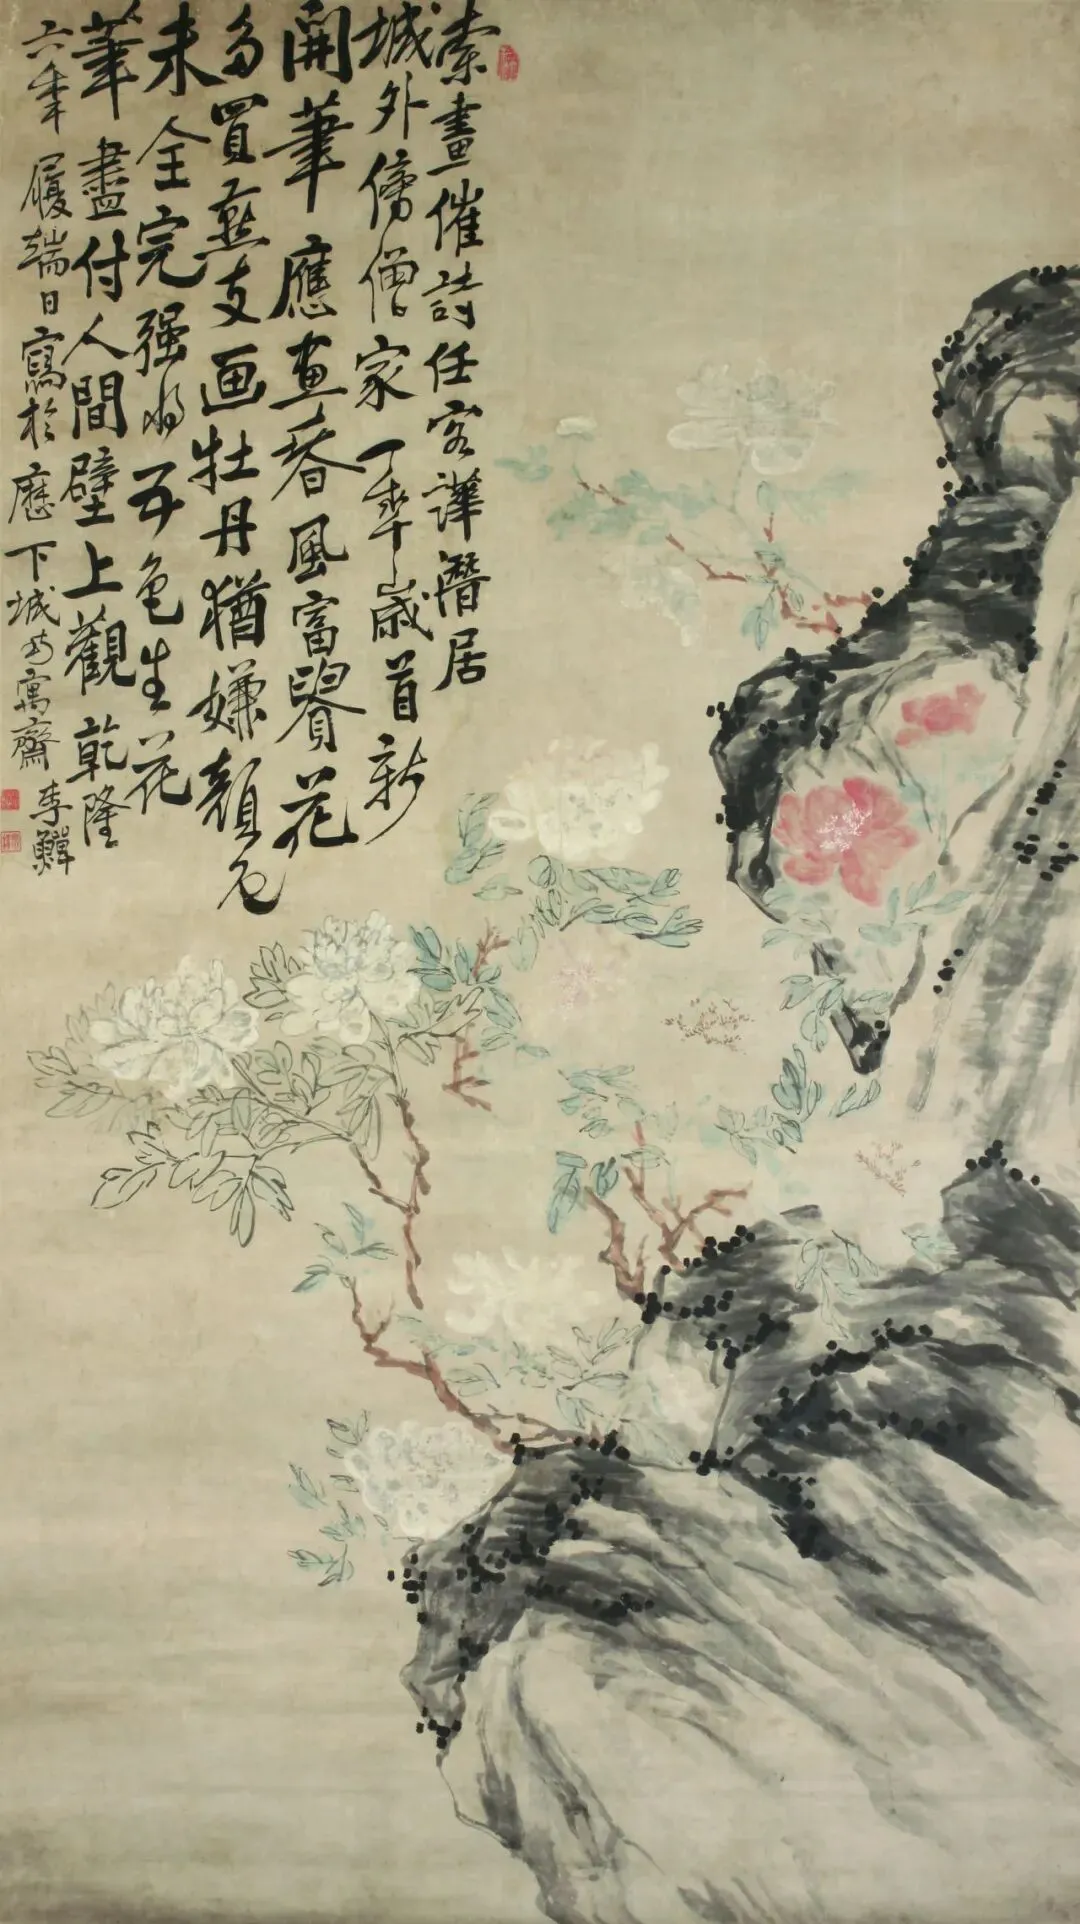 索畫催詩任客譁潛居
城外傍僧家一年歲首新
開筆應畫春風富貴花
多買燕支画牡丹猶嫌顏色
未全完强將五色生花
筆盡付人間壁上觀乾隆
六年履端日寫於歷下城南寓齋李鱓